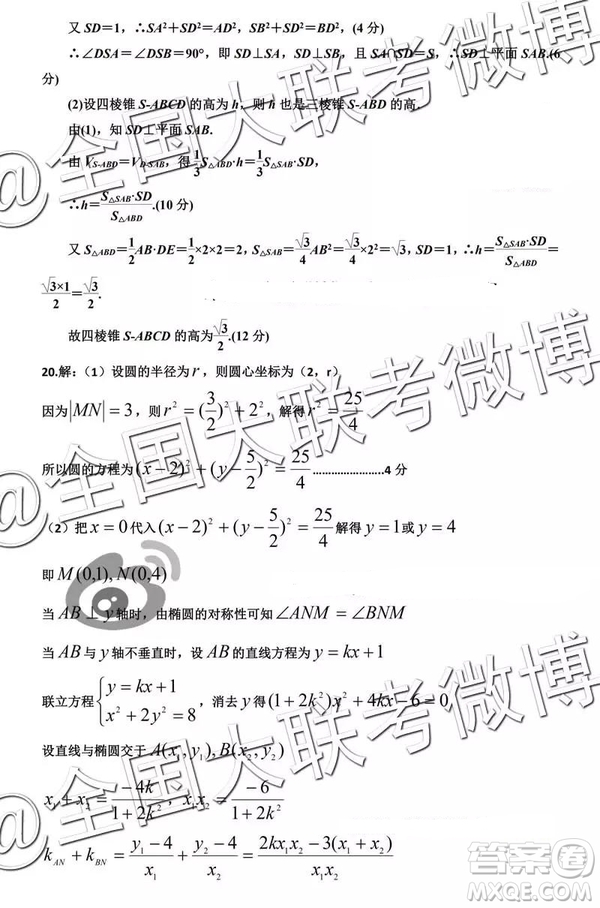 又 SD=1，∴SA²+SD²=AD²，SB²+SD²=BD²，(4 分)
∴∠DSA=∠DSB=90°，即 SD⊥SA，SD⊥SB，且 SA∩SD=S，∴SD⊥平面 SAB.(6
分)
(2)设四棱锥 S-ABCD 的高为 h，则 h 也是三棱锥 S-ABD 的高.
由(1)，知 SD⊥平面 SAB.
由 V_{S-ABD}=V_{D-SAB}，得 1/3 S_{△ABD}·h=1/3 S_{△SAB}·SD，
∴h=S_{△SAB}·SD/S_{△ABD}.(10 分)
又 S_{△ABD}=1/2 AB·DE=1/2×2×2=2，S_{△SAB}=√3/4 AB²=√3/4×2²=√3，SD=1，∴h=S_{△SAB}·SD/S_{△ABD}=
√3×1/2=√3/2.
故四棱锥 S-ABCD 的高为√3/2.(12 分)
20.解：（1）设圆的半径为 r，则圆心坐标为（2，r）
因为|MN|=3，则 r²=(3/2)²+2²，解得 r²=25/4
所以圆的方程为 (x-2)²+(y-5/2)²=25/4 ........................4 分
（2）把 x=0 代入 (x-2)²+(y-5/2)²=25/4 解得 y=1 或 y=4
即 M(0,1), N(0,4)
当 AB⊥y 轴时，由椭圆的对称性可知 ∠ANM=∠BNM
当 AB 与 y 轴不垂直时，设 AB 的直线方程为 y=kx+1
联立方程{y=kx+1
x²+2y²=8，消去 y 得 (1+2k²)x²+4kx-6=0
设直线与椭圆交于 A(x₁,y₁), B(x₂,y₂)
x₁+x₂=-4k/1+2k²，x₁x₂=-6/1+2k²
k_{AN}+k_{BN}=y₁-4/x₁+y₂-4/x₂=2kx₁x₂-3(x₁+x₂)/x₁x₂
@全国大联考微博
@全国大联考微博
@全国大联考微博
答案圈
MXQE.COM